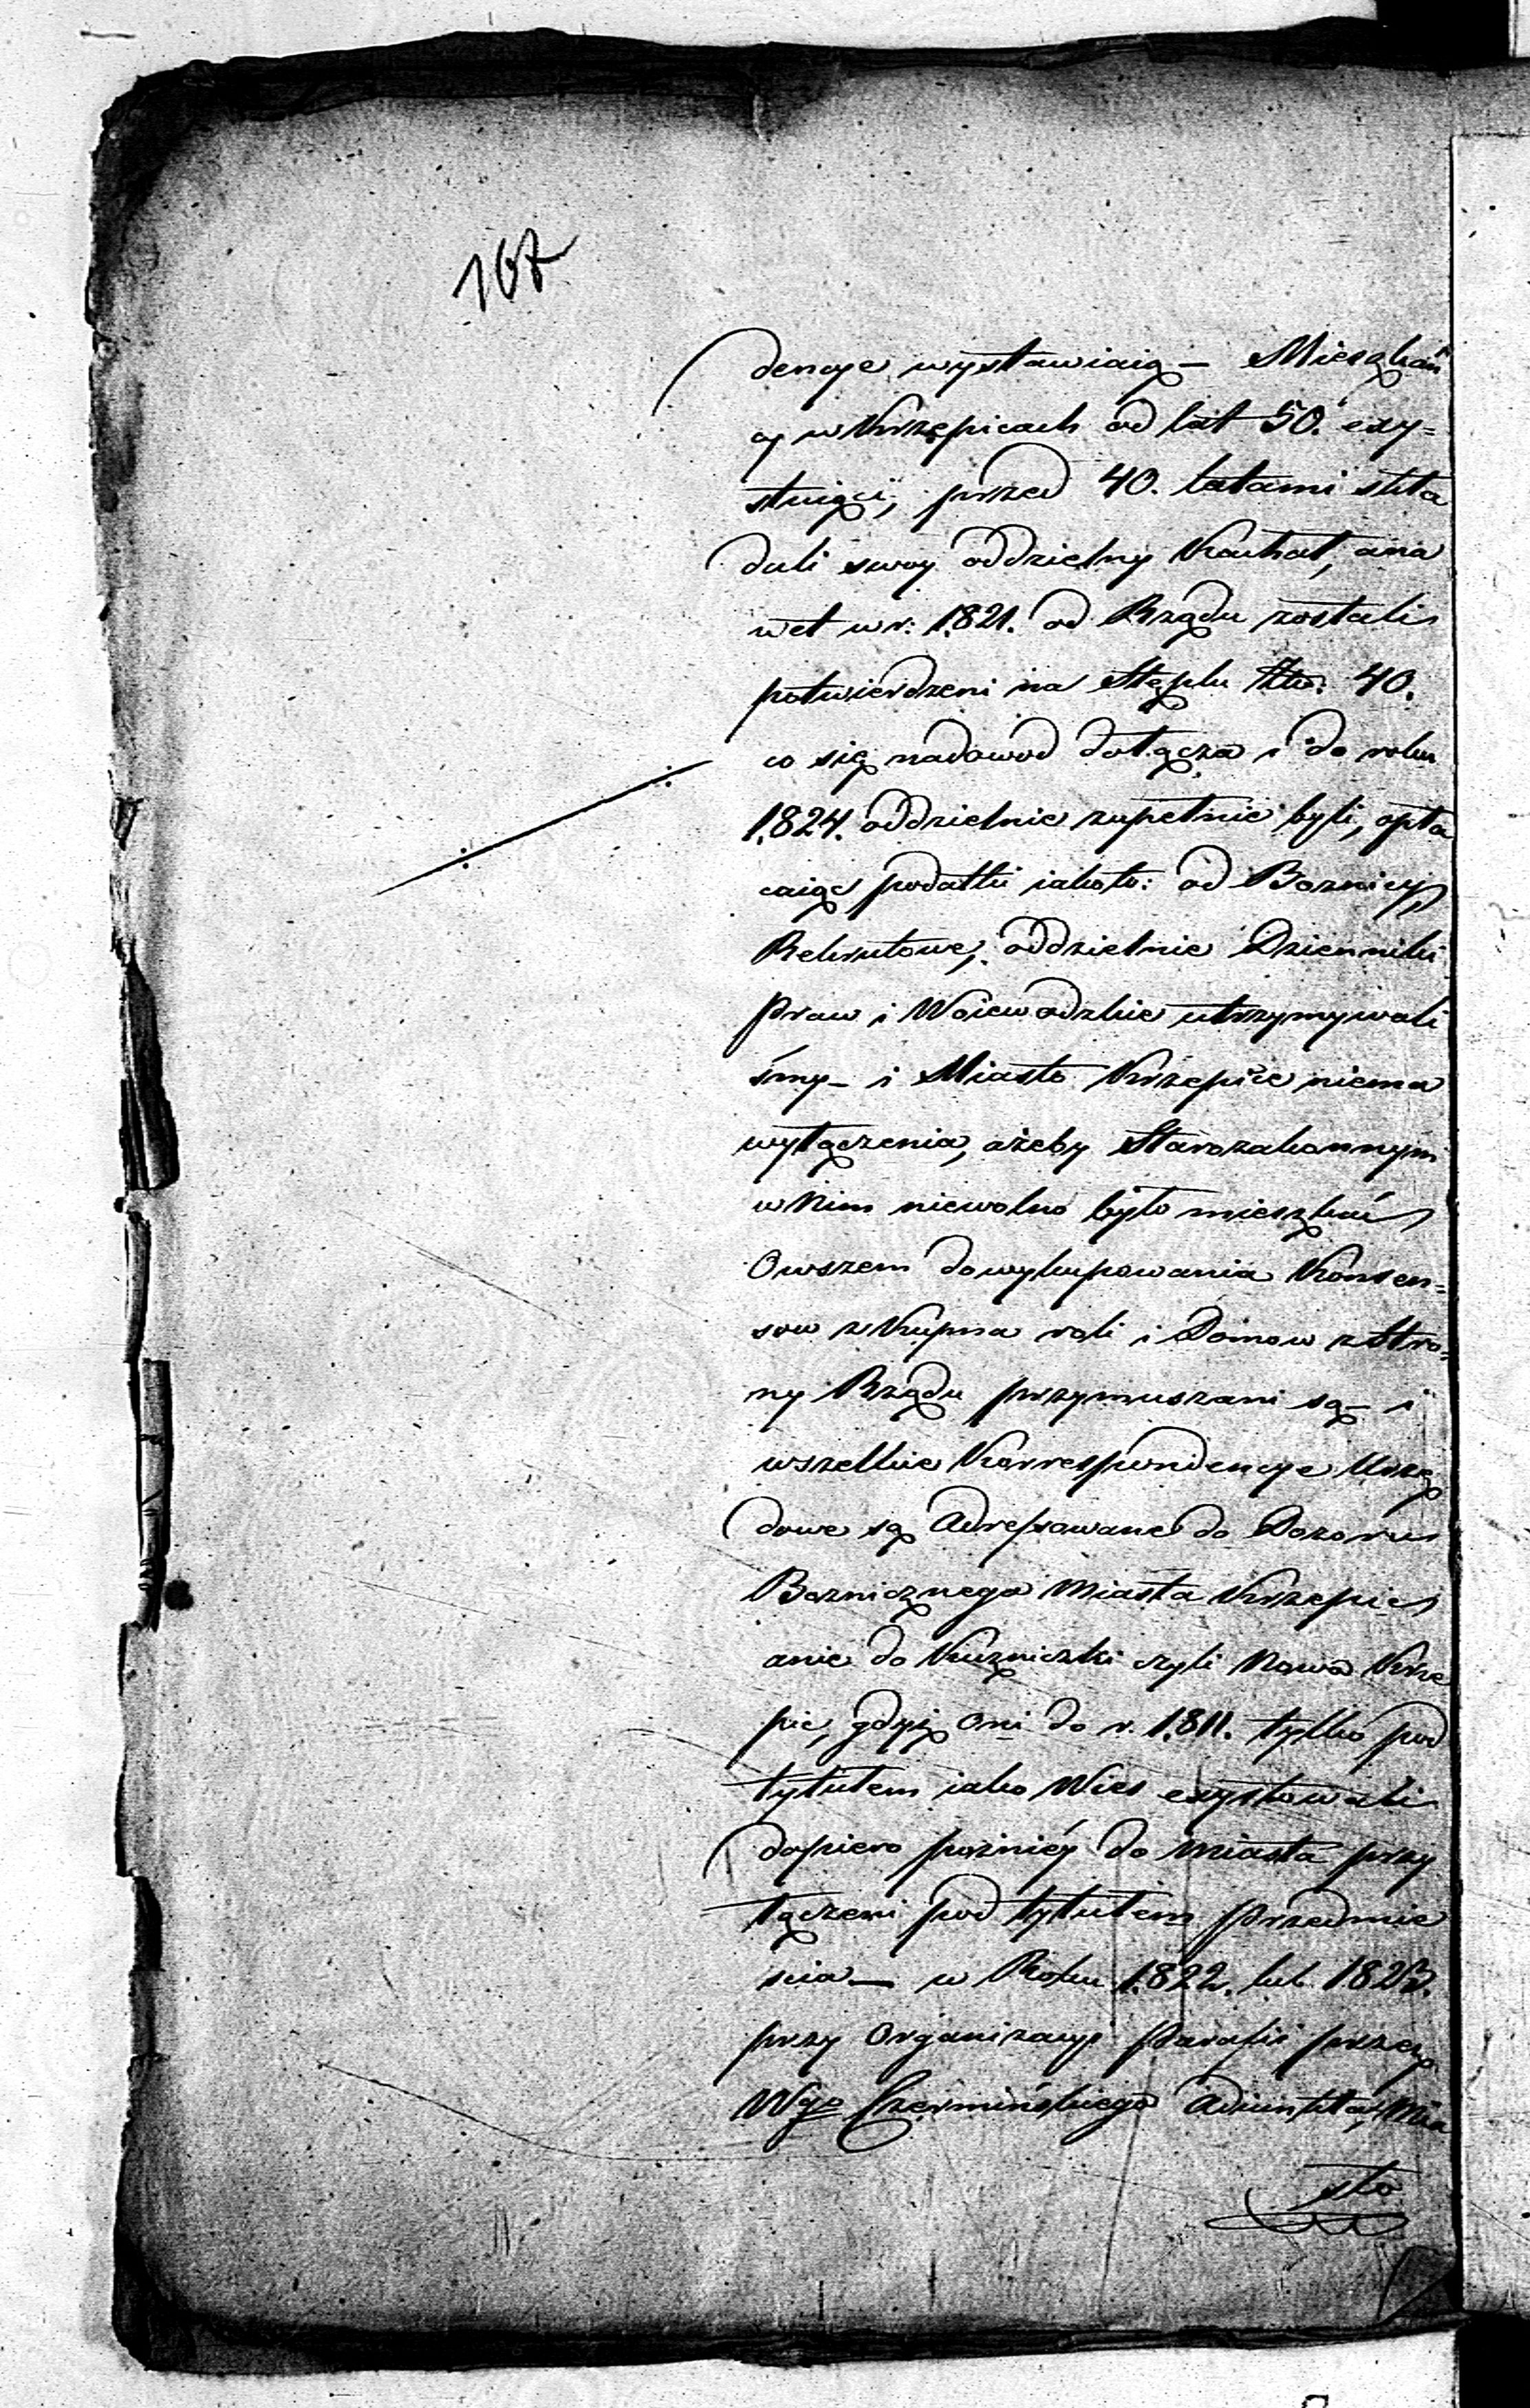 167
dencye wystawiaią – Mieszkań
cy w Krzepicach od lat 50. exy=
stuiący, przed 40. latami skła
dali swoy oddzielny Kachał, ana
wet w r: 1821. od Rządu zostali
potwierdzeni na Stęplu Złt: 40.
co się nadowod dołącza i do roku
1824. oddzielnie zupełnie byli, opła
caiąc podatki iakoto: od Boznicy,
Rekrutowe, oddzielnie Dzienniki
Praw i Woiewodzkie utrzymywali
śmy – i Miasto Krzepice niema
wyłączenia, ażeby Starozakonnym
w Nim niewolno było mieszkać
Owszem do wykupowania Konsen=
sow z Kupna roli i Domow z Stro=
ny Rządu przymuszani są – i
wszelkie Korrespondencye Urzę
dowe są Adressowane do Dozoru
Boznicznego Miasta Krzepic
anie do Kuźniczki czyli Nowo Krze
pic, gdyż Oni do r. 1811. tylko pod
tytułem iako Wies exystowali
dopiero poźniéy do Miasta przy
łączeni pod tytułem Przedmie
scia – w Roku 1822. lub 1823.
przy Organizacyi Parafii przez
Wgo Czermińskiego Adiunkta, Mia
sto